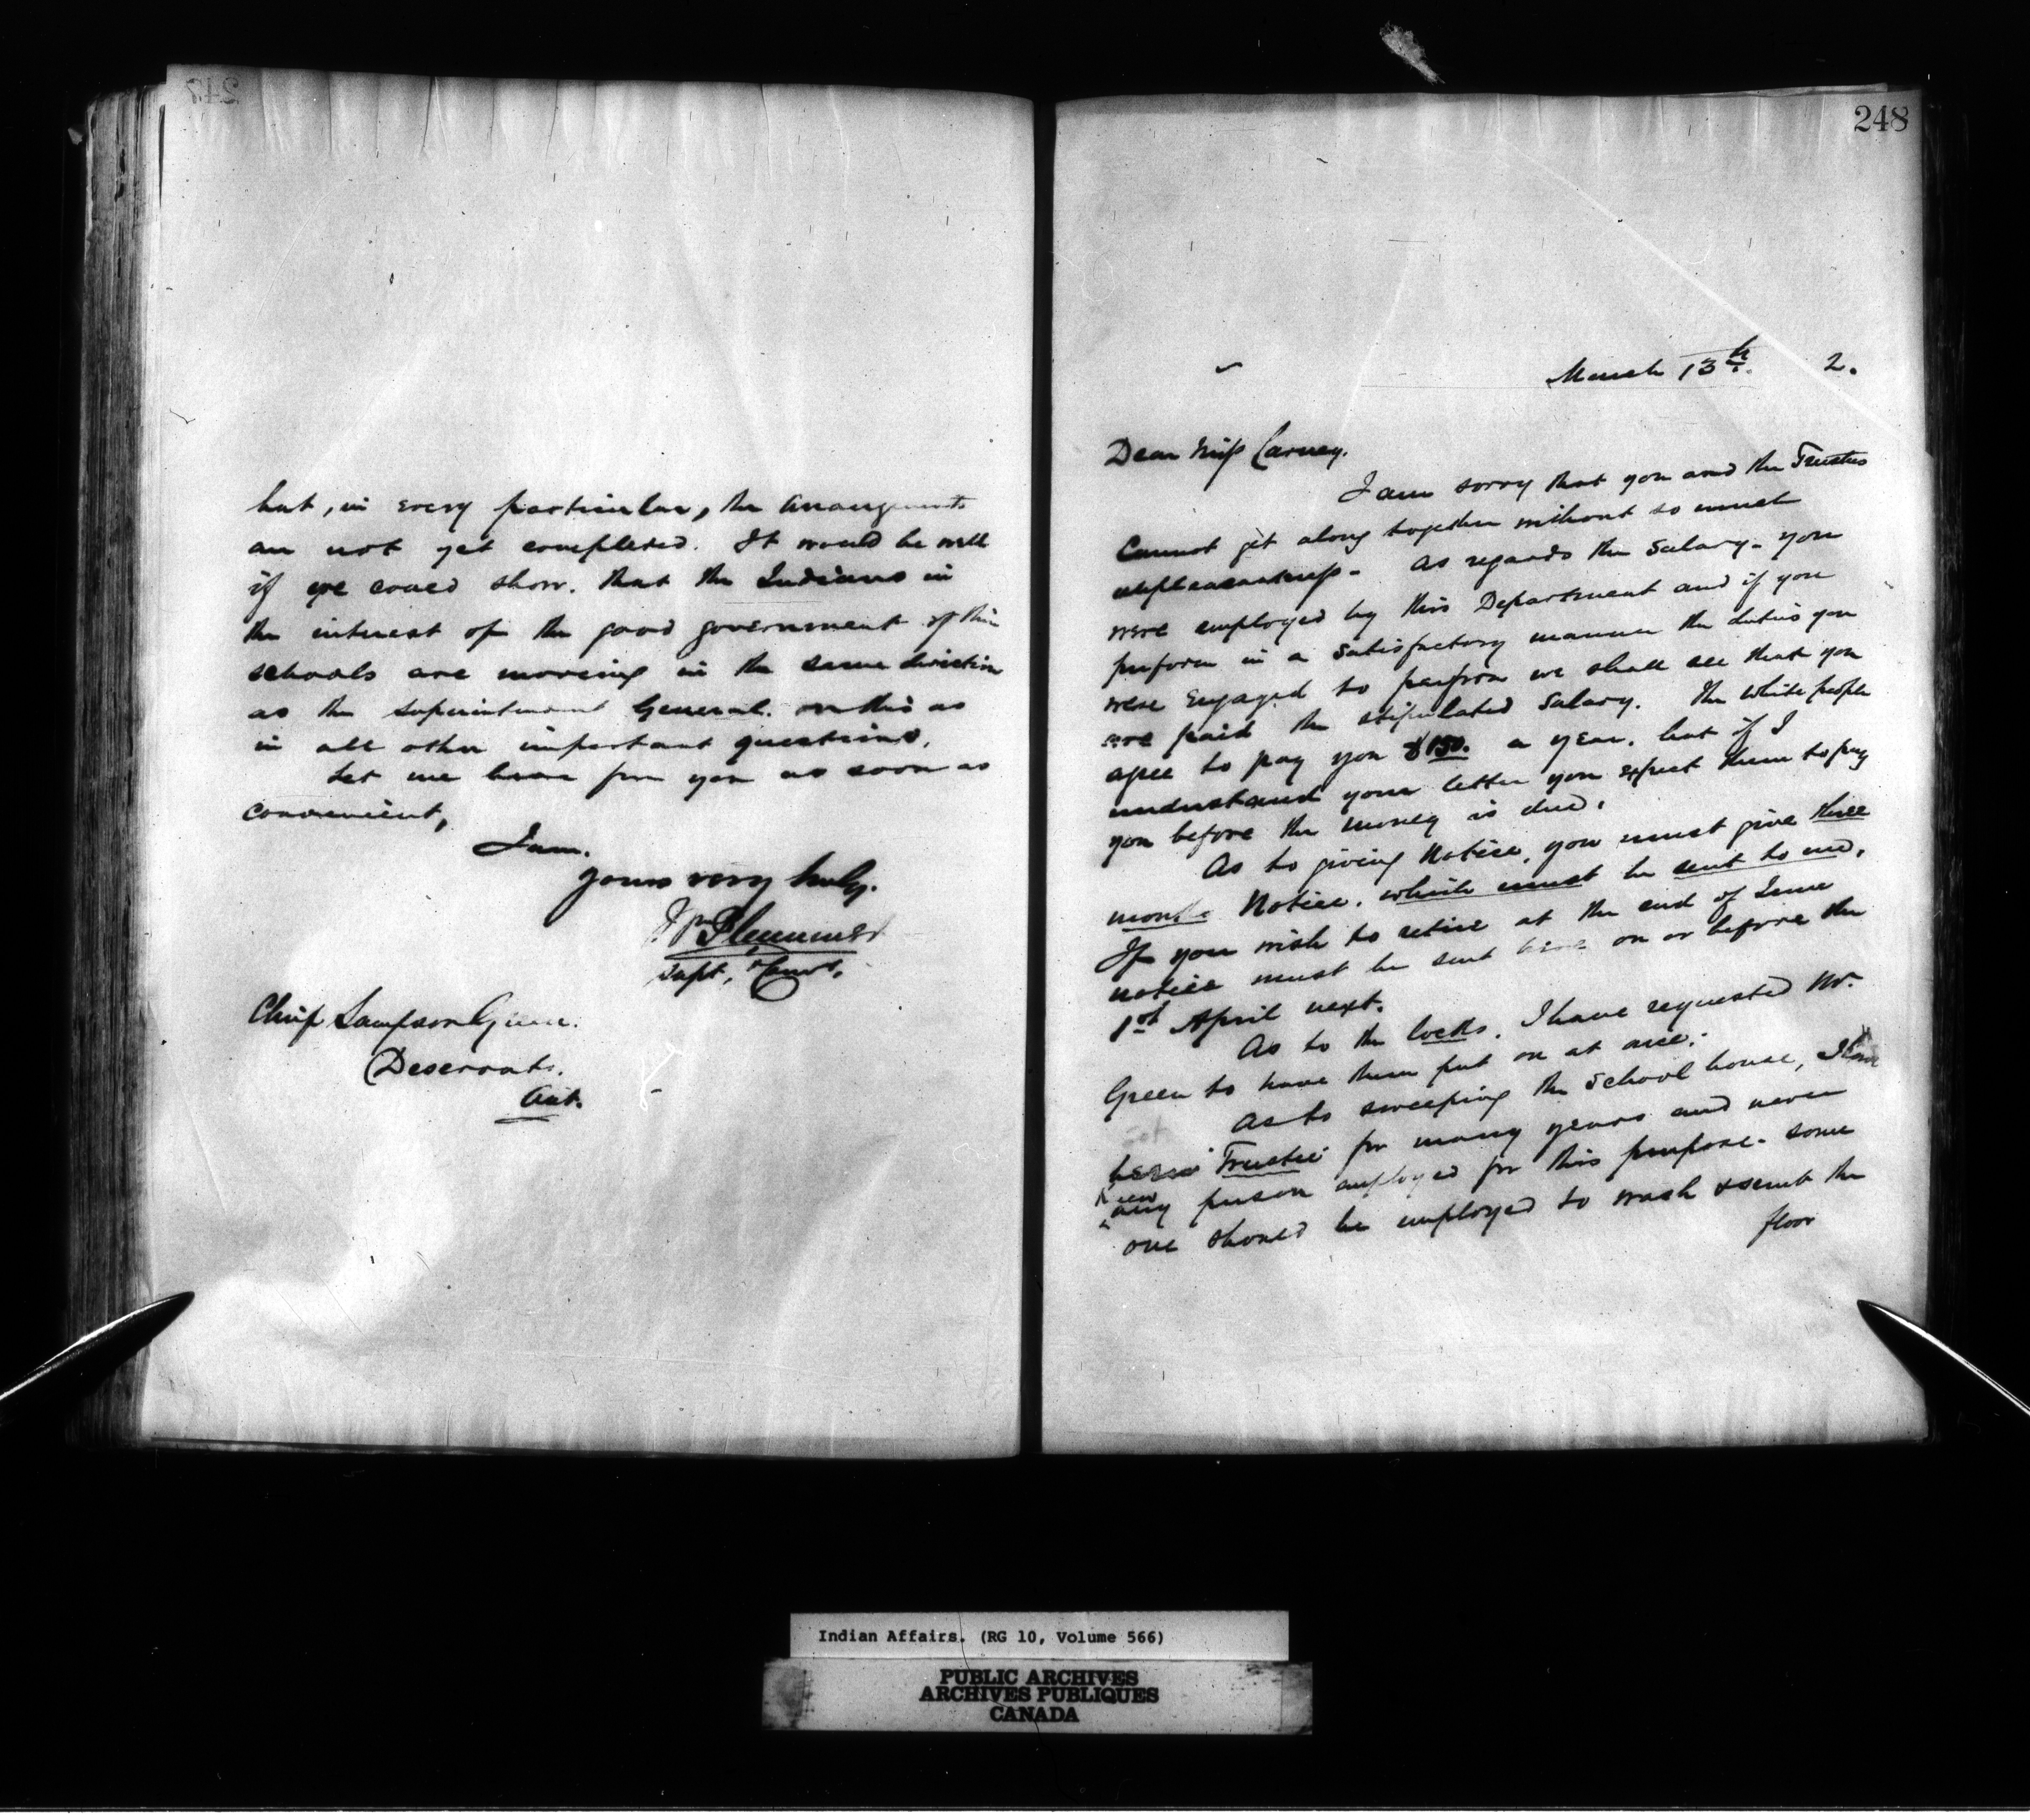 247
but, in every particular, the arrangements
are not yet completed. It would be well
if we could show. that the Indians in
the interest of the good government of their
schools are moving in the same direction
as the Superintendent General. on this as
in all other important questions.
Let me hear from you as soon as
convenient,
I am.
Yours very truly.
Plummer
Supt, & Comr.
Chief Sampson Green.
Deseronto.
Ont.
248
March 13th. 2.
Dear Miss Carney.
I am sorry that you and the Trustees
Cannot get along together without so much
unpleasantness - As regards the Salary - you
were employed by this Department and if you
perform in a satisfactory manner the duties you
were engaged to perform we shall see that you
are paid the stipulated Salary. The white people
agree to pay you $150. a year. but if I
understand your letter you expect them to pay
you before the money is due.
As to giving Notice, you must give three
months Notice. which must be sent to me.
If you wish to retire at the end of June
notice must be sent here on or before the
1st April next.
As to the locks. I have requested Mr.
Green to have them put on at once.
As to sweeping the School house, I have
been Trustee for many years and never
knew any person employed for this purpose - some
one should be employed to wash & scrub the
floor
Indian Affairs. (RG 10, Volume 566)
PUBLIC ARCHIVES
ARCHIVES PUBLIQUES
CANADA